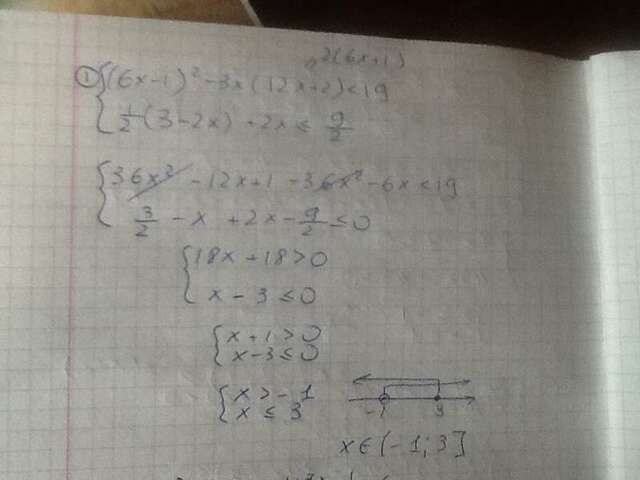 2(6x+1)
① {(6x-1)² - 3x(12x+2) < 19
{1/2(3-2x) + 2x ≤ 9/2
{36x² - 12x+1 - 36x² - 6x < 19
3/2 - x + 2x - 9/2 ≤ 0
{18x + 18 > 0
x - 3 ≤ 0
{x + 1 > 0
x - 3 ≤ 0
{x > -1
x ≤ 3
-1 3
x ∈ (-1; 3]